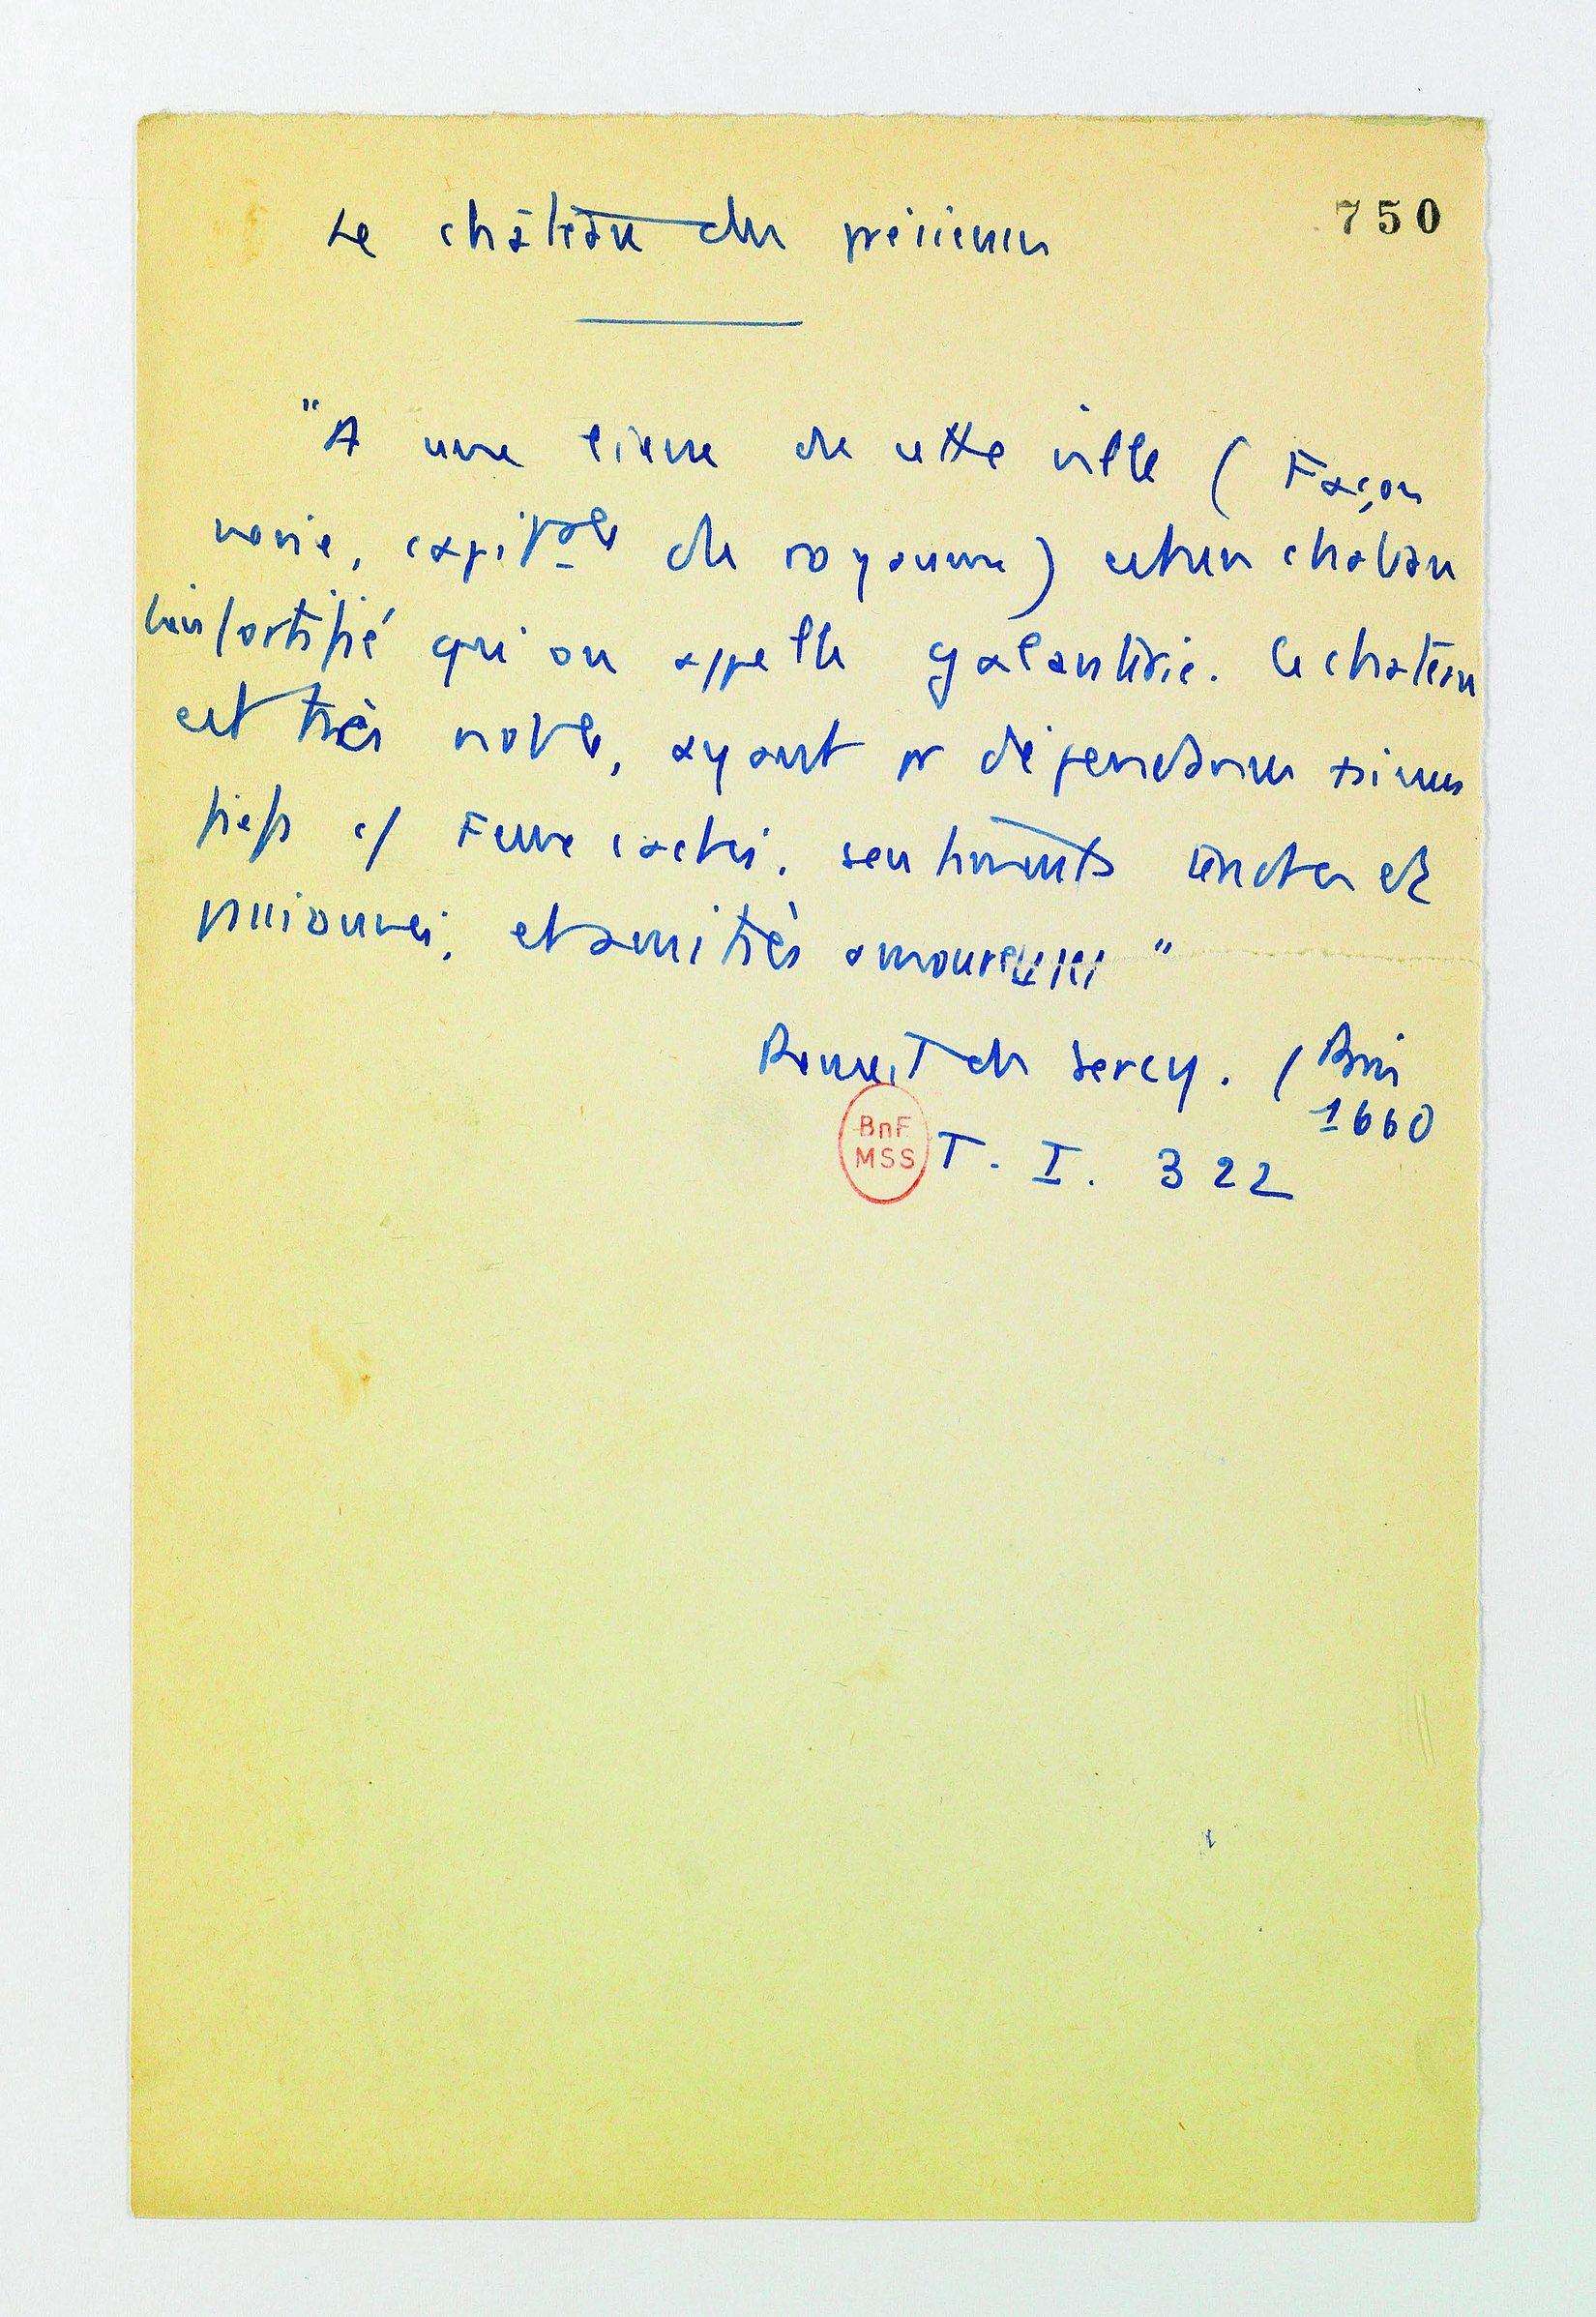 Le château des précieuses
750
"A une lieue de cette ville (Façon
nerie, capitale du royaume) est un château
bien fortifié qu'on appelle Galanterie. Ce château
est très noble, ayant pr dépendances
fiefs c/ Feux cachés, sentiments tendres et
passionnés, et amitiés amoureuses"
Recueil de Sercy. (Paris
1660
BnF
MSS
T. I. 322